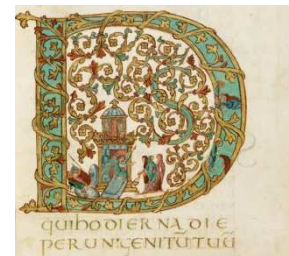 D
qui hodierna die
per unigenitū tuū